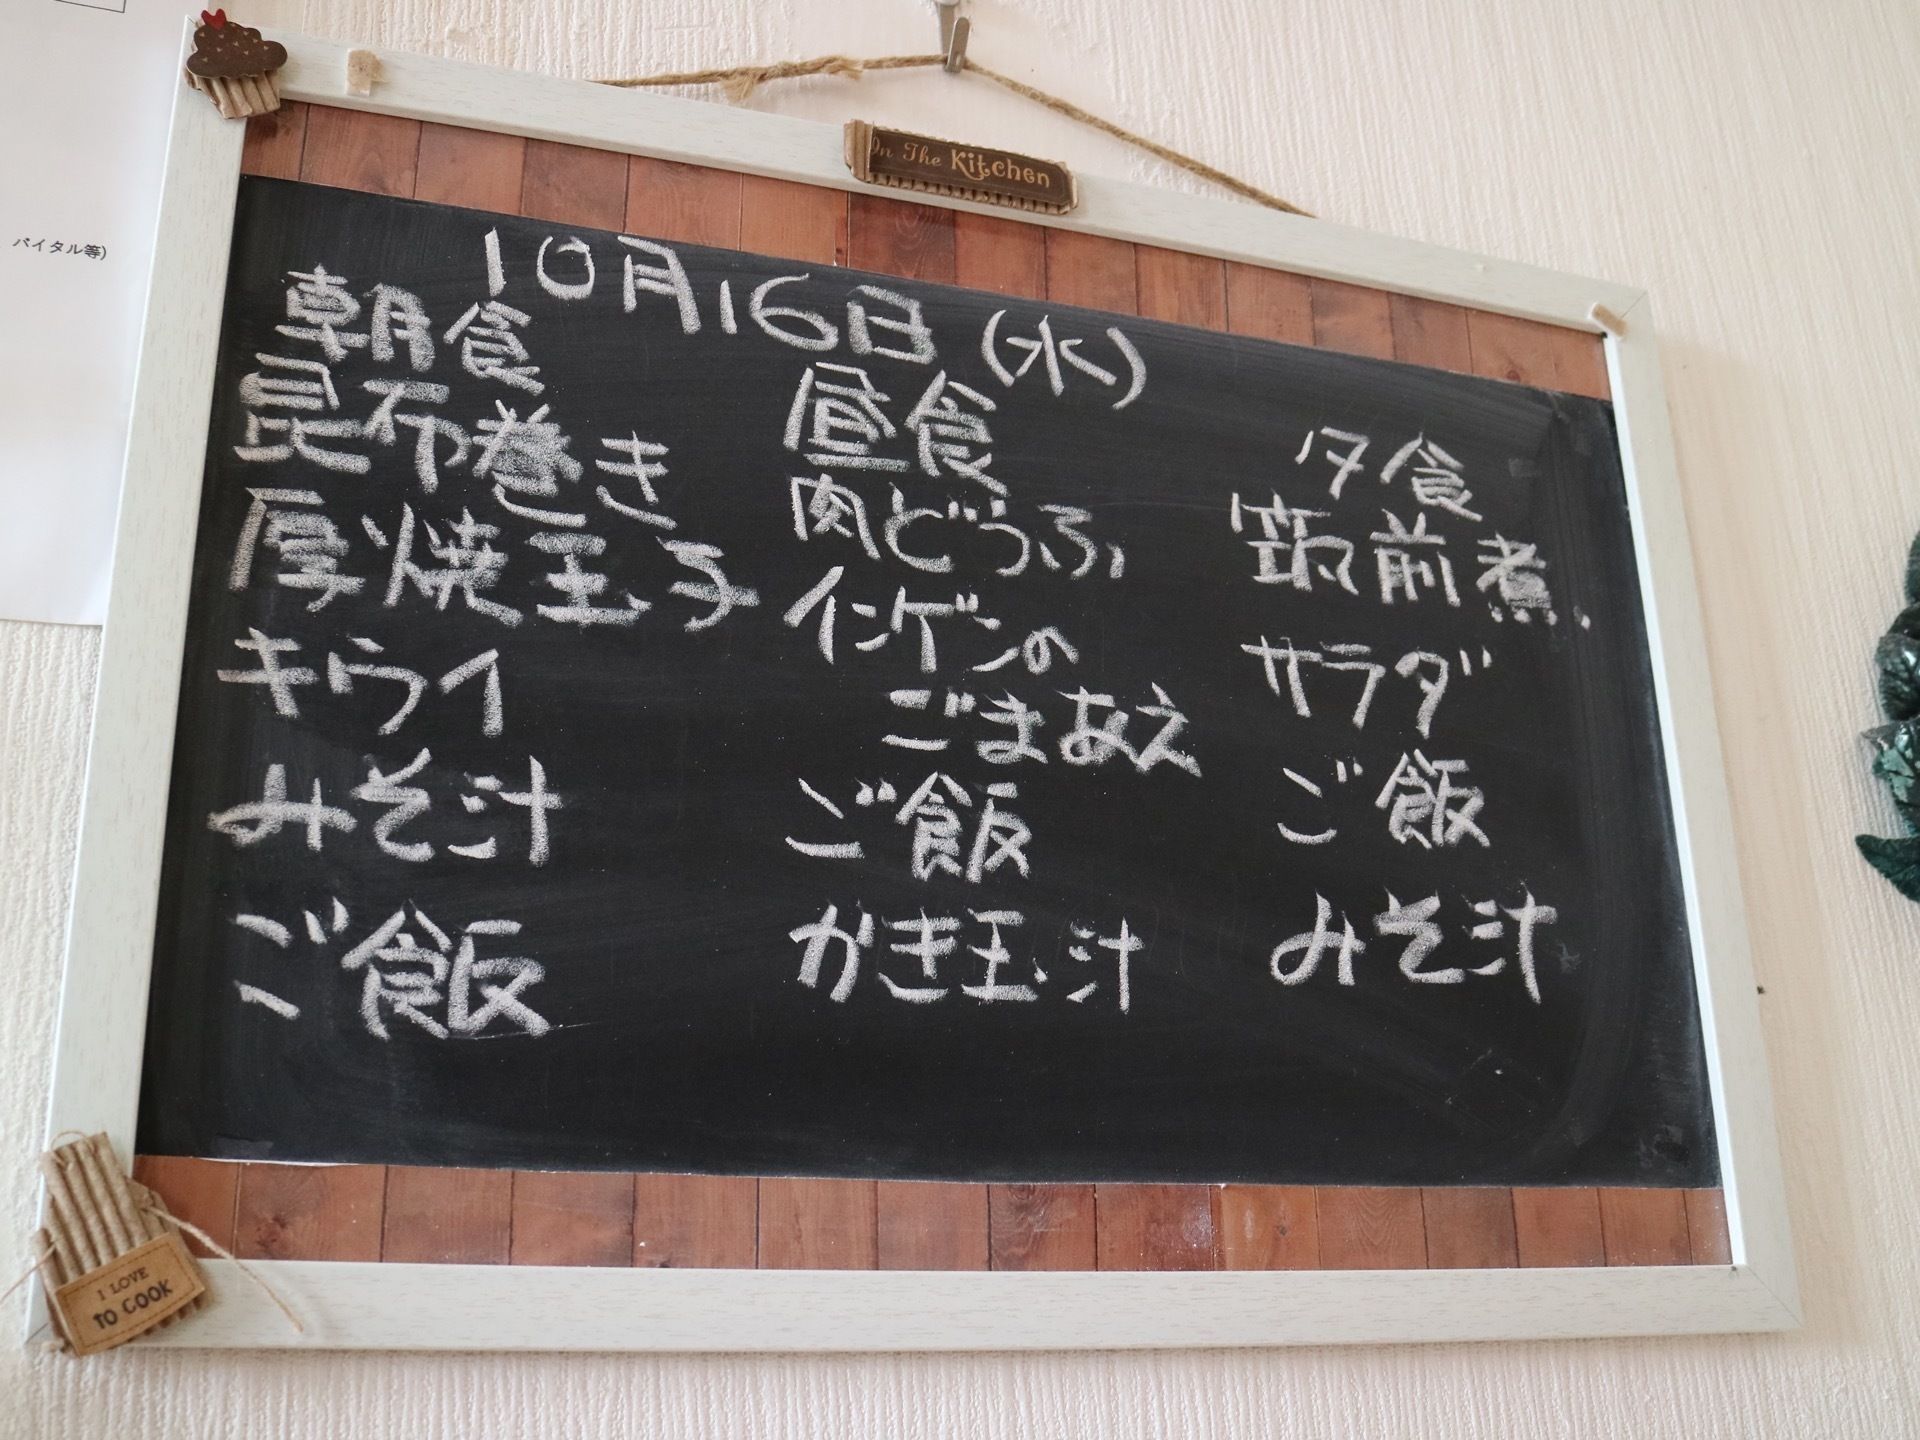 In The Kitchen
バイタル等)
10月16日(水)
朝食
昆布巻き
厚焼玉子
キウイ
みそ汁
ご飯
昼食
肉どうふ
インゲンの
ごまあえ
ご飯
かき玉汁
夕食
筑前煮
サラダ
ご飯
みそ汁
I LOVE
TO COOK